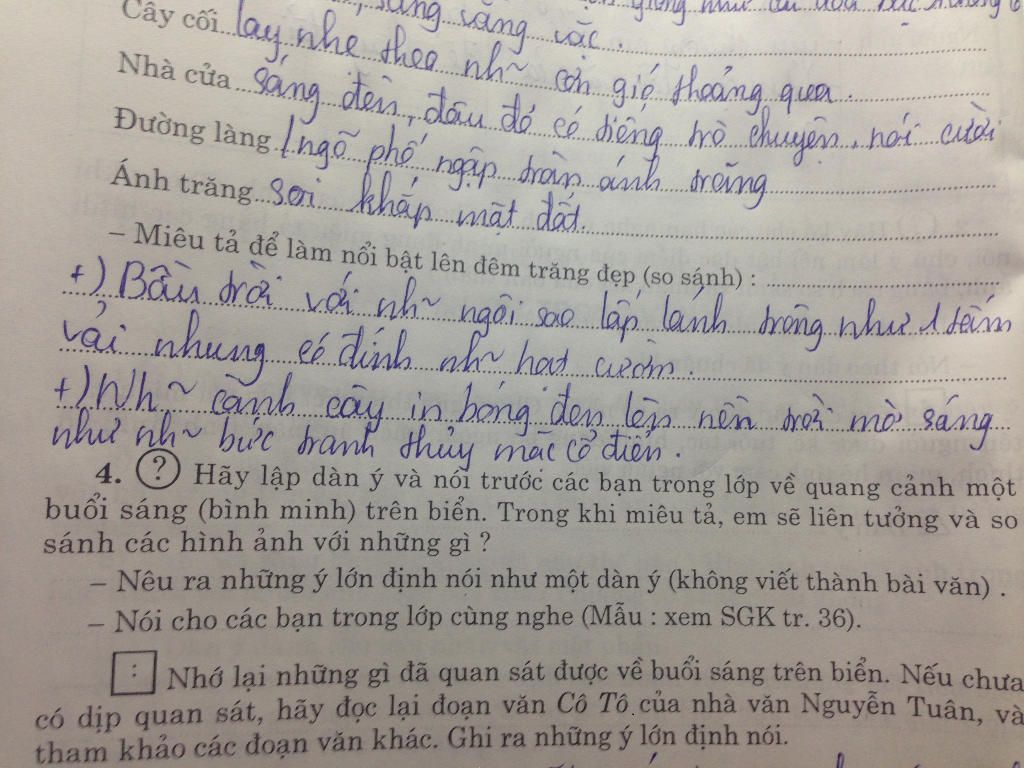 Cây cối lay nhẹ theo nh~ cơn gió thoảng qua.
Nhà cửa sáng đèn, đâu đó có tiếng trò chuyện, nói cười
Đường làng / ngõ phố ngập tràn ánh trăng
Ánh trăng soi khắp mặt đất.
– Miêu tả để làm nổi bật lên đêm trăng đẹp (so sánh) :
+) Bầu trời với nh~ ngôi sao lấp lánh trông như 1 tấm
vải nhung có đính nh~ hạt cườm.
+) Nh~ cành cây in bóng đen lên nền trời mờ sáng
như nh~ bức tranh thủy mặc cổ điển.
4. ? Hãy lập dàn ý và nói trước các bạn trong lớp về quang cảnh một
buổi sáng (bình minh) trên biển. Trong khi miêu tả, em sẽ liên tưởng và so
sánh các hình ảnh với những gì ?
– Nêu ra những ý lớn định nói như một dàn ý (không viết thành bài văn) .
– Nói cho các bạn trong lớp cùng nghe (Mẫu : xem SGK tr. 36).
: Nhớ lại những gì đã quan sát được về buổi sáng trên biển. Nếu chưa
có dịp quan sát, hãy đọc lại đoạn văn Cô Tô của nhà văn Nguyễn Tuân, và
tham khảo các đoạn văn khác. Ghi ra những ý lớn định nói.